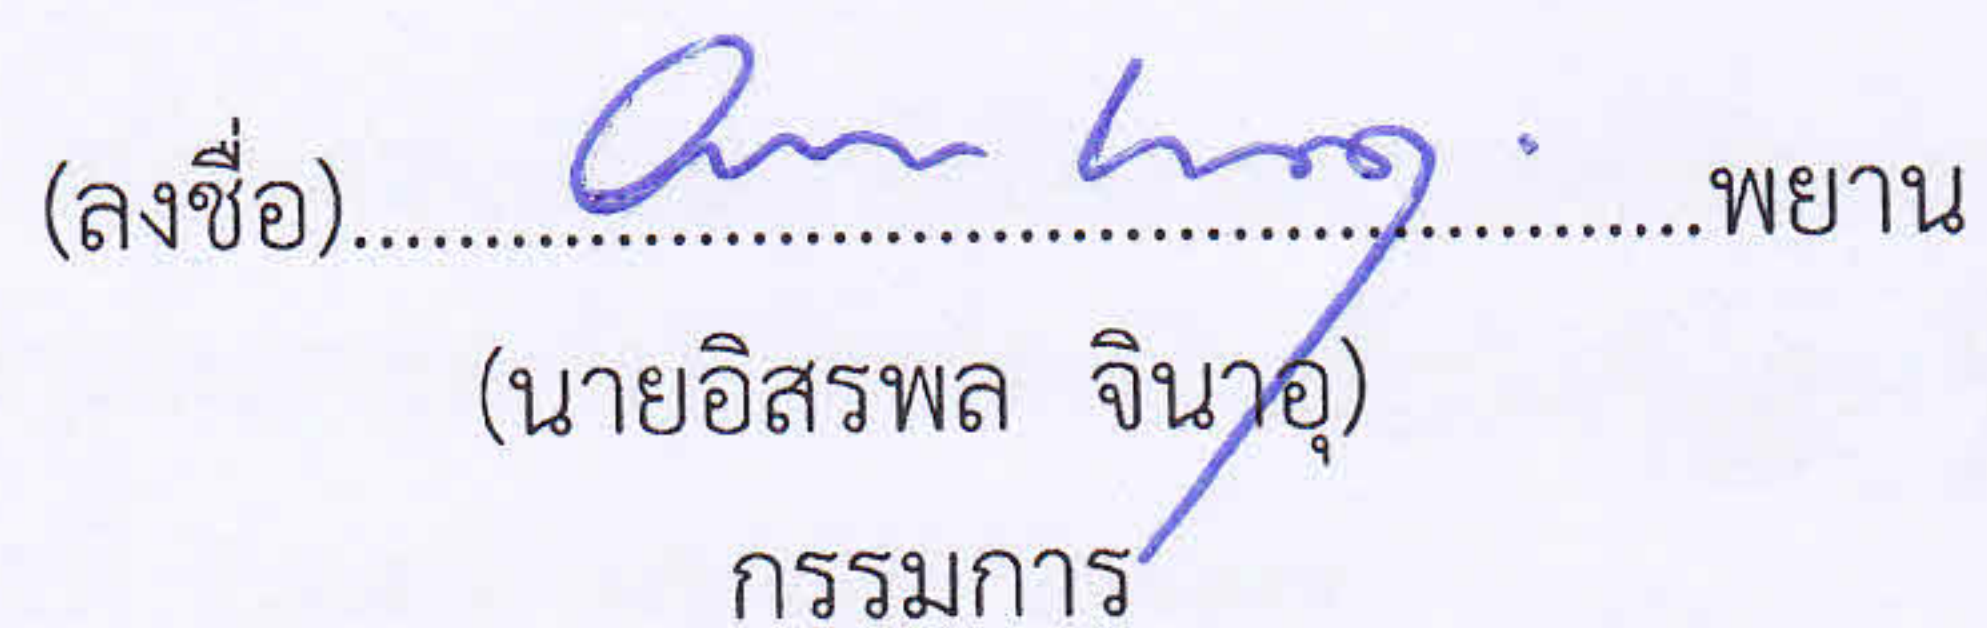 (ลงชื่อ)..................................................พยาน
(นายอิสรพล จินาอุ)
กรรมการ